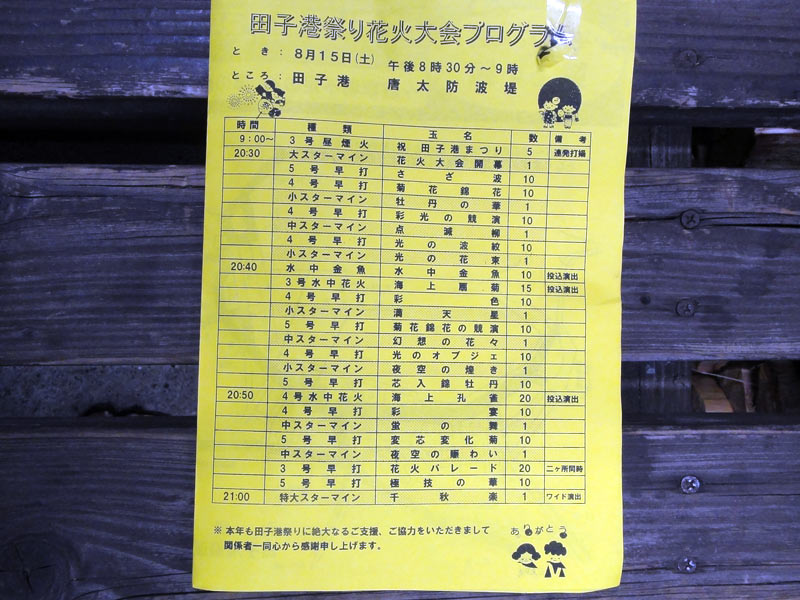 田子港祭り花火大会プログラ
とき: 8月15日(土) 午後8時30分~9時
ところ: 田子港 唐太防波堤
時間 種類 玉名 数 備考
9:00~ 3号昼煙火 祝田子港まつり 5 連発打揚
20:30 大スターマイン 花火大会開幕 1
5号早打 さざ波 10
4号早打 菊花錦花 10
小スターマイン 牡丹の華 1
4号早打 彩光の競演 10
中スターマイン 点滅柳 1
4号早打 光の波紋 10
小スターマイン 光の花束 1
20:40 水中金魚 水中金魚 10 投込演出
3号水中花火 海上扇菊 15 投込演出
4号早打 彩色 10
小スターマイン 満天星 1
5号早打 菊花錦花の競演 10
中スターマイン 幻想の花々 1
4号早打 光のオブジェ 10
小スターマイン 夜空の煌き 1
5号早打 芯入錦牡丹 10
20:50 4号水中花火 海上孔雀 20 投込演出
4号早打 彩宴 10
中スターマイン 蛍の舞 1
5号早打 変芯変化菊 10
中スターマイン 夜空の賑わい 1
3号早打 花火パレード 20 二ヶ所同時
5号早打 極技の華 10
21:00 特大スターマイン 千秋楽 1 ワイド演出
※ 本年も田子港祭りに絶大なるご支援、ご協力をいただきまして
関係者一同心から感謝申し上げます。
ありがとう